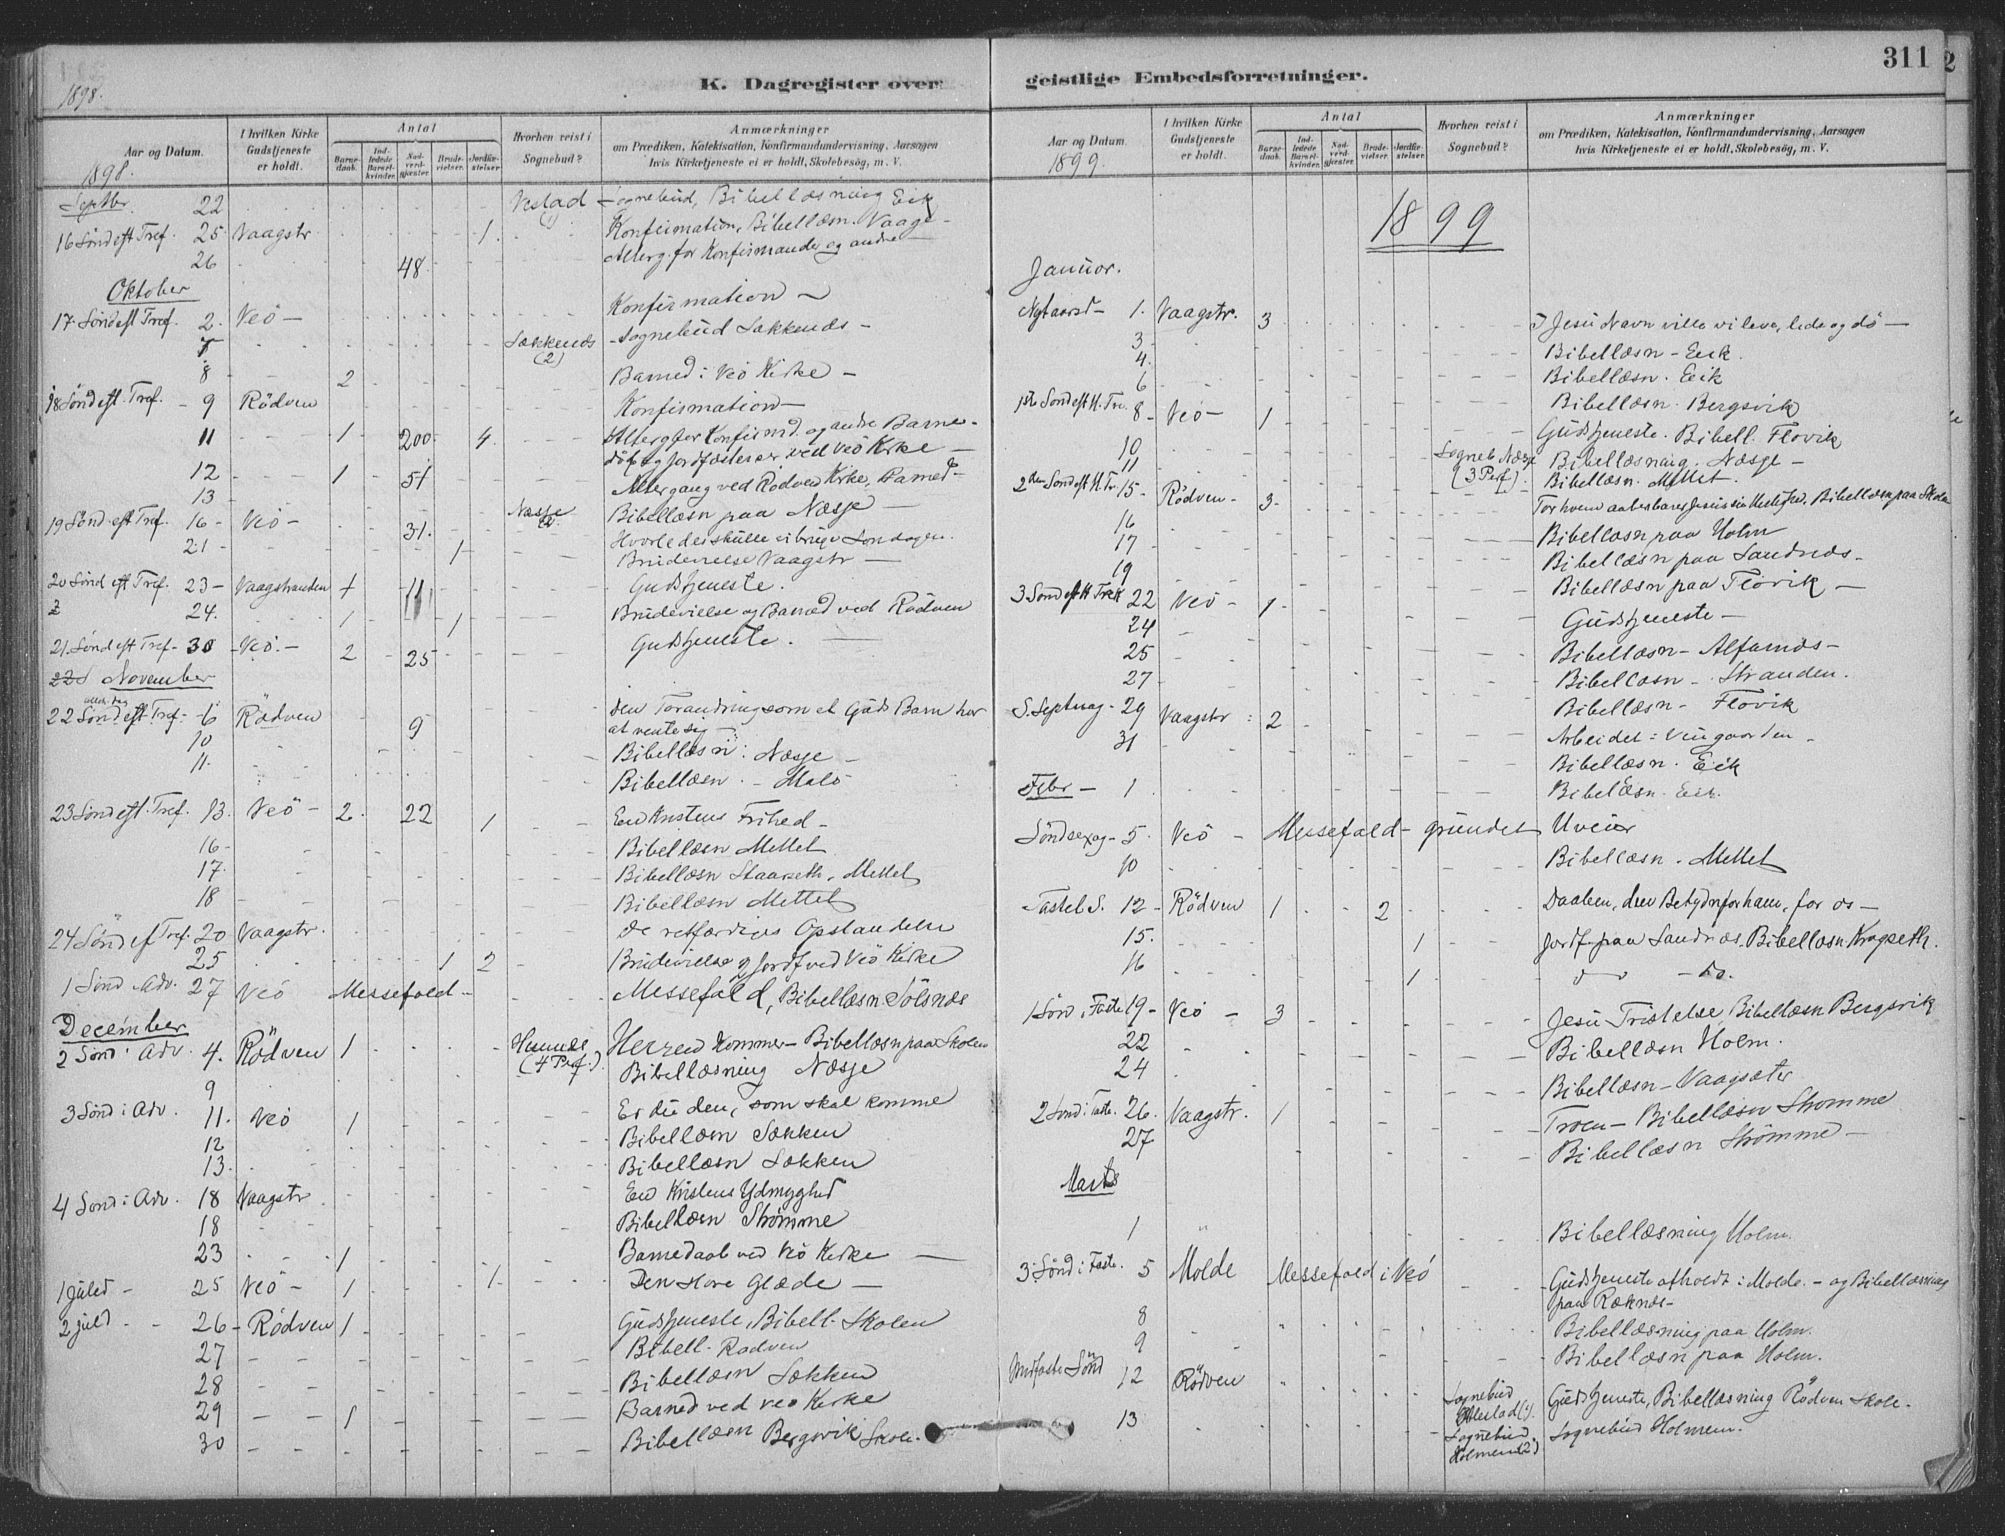 1898.
K. Dagregister over
Aar og Datum.
1898.
I hvilken Kirke Gudstjeneste er holdt.
Antal
Barnedaab.
Indledede Barselkvinder.
Nadverdgjæster.
Brudevielser.
Jordfæstelser.
Hvorhen reist i Sognebud?
Anmærkninger
om Prædiken, Katekisation, Konfirmandundervisning, Aarsagen
hvis Kirketjeneste ei er holdt, Skolebesøg, m. V.
Septbr. 22 Vestad (1) Sognebud, Bibellæsning Eik
16 Sønd eft Tref. 25 Vaagstr. 1. Konfirmation, Bibellæsn. Vaage
26 48 Alterg. for Konfirmander og andre
Oktober
17. Sønd eft Tref. 2. Veö Konfirmation
7 Sækkenæs (2) Sognebud Sækkenæs
8 2 Barned i Veö Kirke
18 Sønd eft. Tref. 9 Rödven Konfirmation
11 1 200 4. Alterg for Konfirmd. og andre Barne-
döb og Jordfæstelser ved Veö Kirke
12 1 51 Altergang ved Rödven Kirke, Barned
13 Næsje Bibellæsn paa Næsje
19 Sønd. eft Tref. 16 Veö 31. Hvorledes skulle vi bruge Søndagen.
21 1 Brudevielse Vaagstr
20 Sønd eft Tref. 23 Vaagstranden 1 11 Gudstjeneste.
24. 1 1 Brudevielse og Barned ved Rödven
21. Sønd eft Tref. 30 Veö. 2 25 Gudstjeneste.
November
22 Sønd eft Tref. 6 Rödven 9 Den Forandring som et Guds Barn har
at vente sig
10 Bibellæsn: Næsje
11. Bibellæsn. Malö
23 Sønd eft. Tref. 13. Veö 2. 22 1 En Kristens Frihed
16 Bibellæsn Mettet
17. Bibellæsn Staureth, Mettet
18 Bibellæsn Mettet
24 Sønd ef Tref. 20 Vaagstr. De retfærdiges Opstandelse
25 1 2 Brudevielse og Jordf ved Veö Kirke
1 Sønd Adv. 27 Veö Messefald Messefald, Bibellæsn Sölsnæs
December
2 Sønd i Adv. 4. Rödven 1 (4 Pers.) Herren kommer – Bibellæsn paa Skolen
9 Bibellæsning Næsje
3 Sønd i Adv. 11. Veö 1 Er du den, som skal komme
12 Bibellæsn Sækken
13. Bibellæsn Sækken
4 Sønd i Adv. 18 Vaagstr. En Kristens Ydmyghed
18 Bibellæsn Strömme
23 1 Barnedaab ved Veö Kirke
1 Juled 25 Veö 1 1 Den store Glæde
2 Juld 26 Rödven 1 Gudstjeneste, Bibell. Skolen
27 Bibell. Rödven
28 Bibellæsn Sækken
29 1 Barned ved Veö Kirke
30 Bibellæsn Bergsvik Skole.
geistlige Embedsforretninger.
311
Aar og Datum
1899.
I hvilken Kirke Gudstjeneste er holdt.
Antal
Barnedaab.
Indledede Barselkvinder.
Nadverdgjæster.
Brudevielser.
Jordfæstelser.
Hvorhen reist i Sognebud?
Anmærkninger
om Prædiken, Katekisation, Konfirmandundervisning, Aarsagen
hvis Kirketjeneste ei er holdt, Skolebesøg, m. V.
1899
Januar.
Nytaarsd 1. Vaagstr. 3 I Jesu Navn ville vi leve, lide og dö
3 Bibellæsn Eik.
4. Bibellæsn. Eik
6 Bibellæsn. Bergsvik
1ste Sønd eft H. Tre. 8 Veö 1 Gudstjeneste. Bibell. Flovik
10 Sogneb Næsje Bibellæsning. Næsje
11 (3 Pers). Bibellæsn. Mettet.
2den Sønd eft H. Tr. 15 Rödven 3 For hvem aabenbarer Jesus sin Herlighed. Bibellæsn paa Skolen
16 Bibellæsn paa Holm
17 Bibellæsn paa Sandnæs
19 Bibellæsn paa Flovik
3 Sønd eft H Trek 22 Veö 1 Gudstjeneste
24 Bibellæsn – Alfarnæs
25 Bibellæsn – Stranden.
27 Bibellæsn – Flovik
S. Septuag 29 Vaagstr 2 Arbeidet i Viingaarden
31 Bibellæsn. Eik
Febr 1 Bibellæsn. Eik.
Sönd sexag 5. Veö Messefald grundet Uveir
10 Bibellæsn. Mettet
Fastel S. 12 Rödven 1 2 Daaben, dens Betydn for ham, for os
15. 1 Jordf. paa Sandnæs. Bibellæsn Kragseth.
16 1 do do.
1 Sön i Faste 19 Veö 3 Jesu Fristelse Bibellæsn Bergsvik
22 Bibellæsn Holm.
24 Bibellæsn Vaagsæter
2 Sønd i Faste. 26. Vaagstr. 1 Troen – Bibellæsn Strömme
27 Bibellæsn Strömme
Marts
1 " Bibellæsning Holm.
3 Sønd i Faste. 5 Molde Messefald i Veö Gudstjeneste afholdt i Molde. – og Bibellæsning
paa Reknæs
8 Bibellæsning paa Holm.
9 Bibellæsn paa Holm.
Midfaste Sönd 12 Rödven Sognebud Gudstjeneste, Bibellæsning Rödven Skole.
13 Sognebud Holmem (2) Sognebud Holmem.